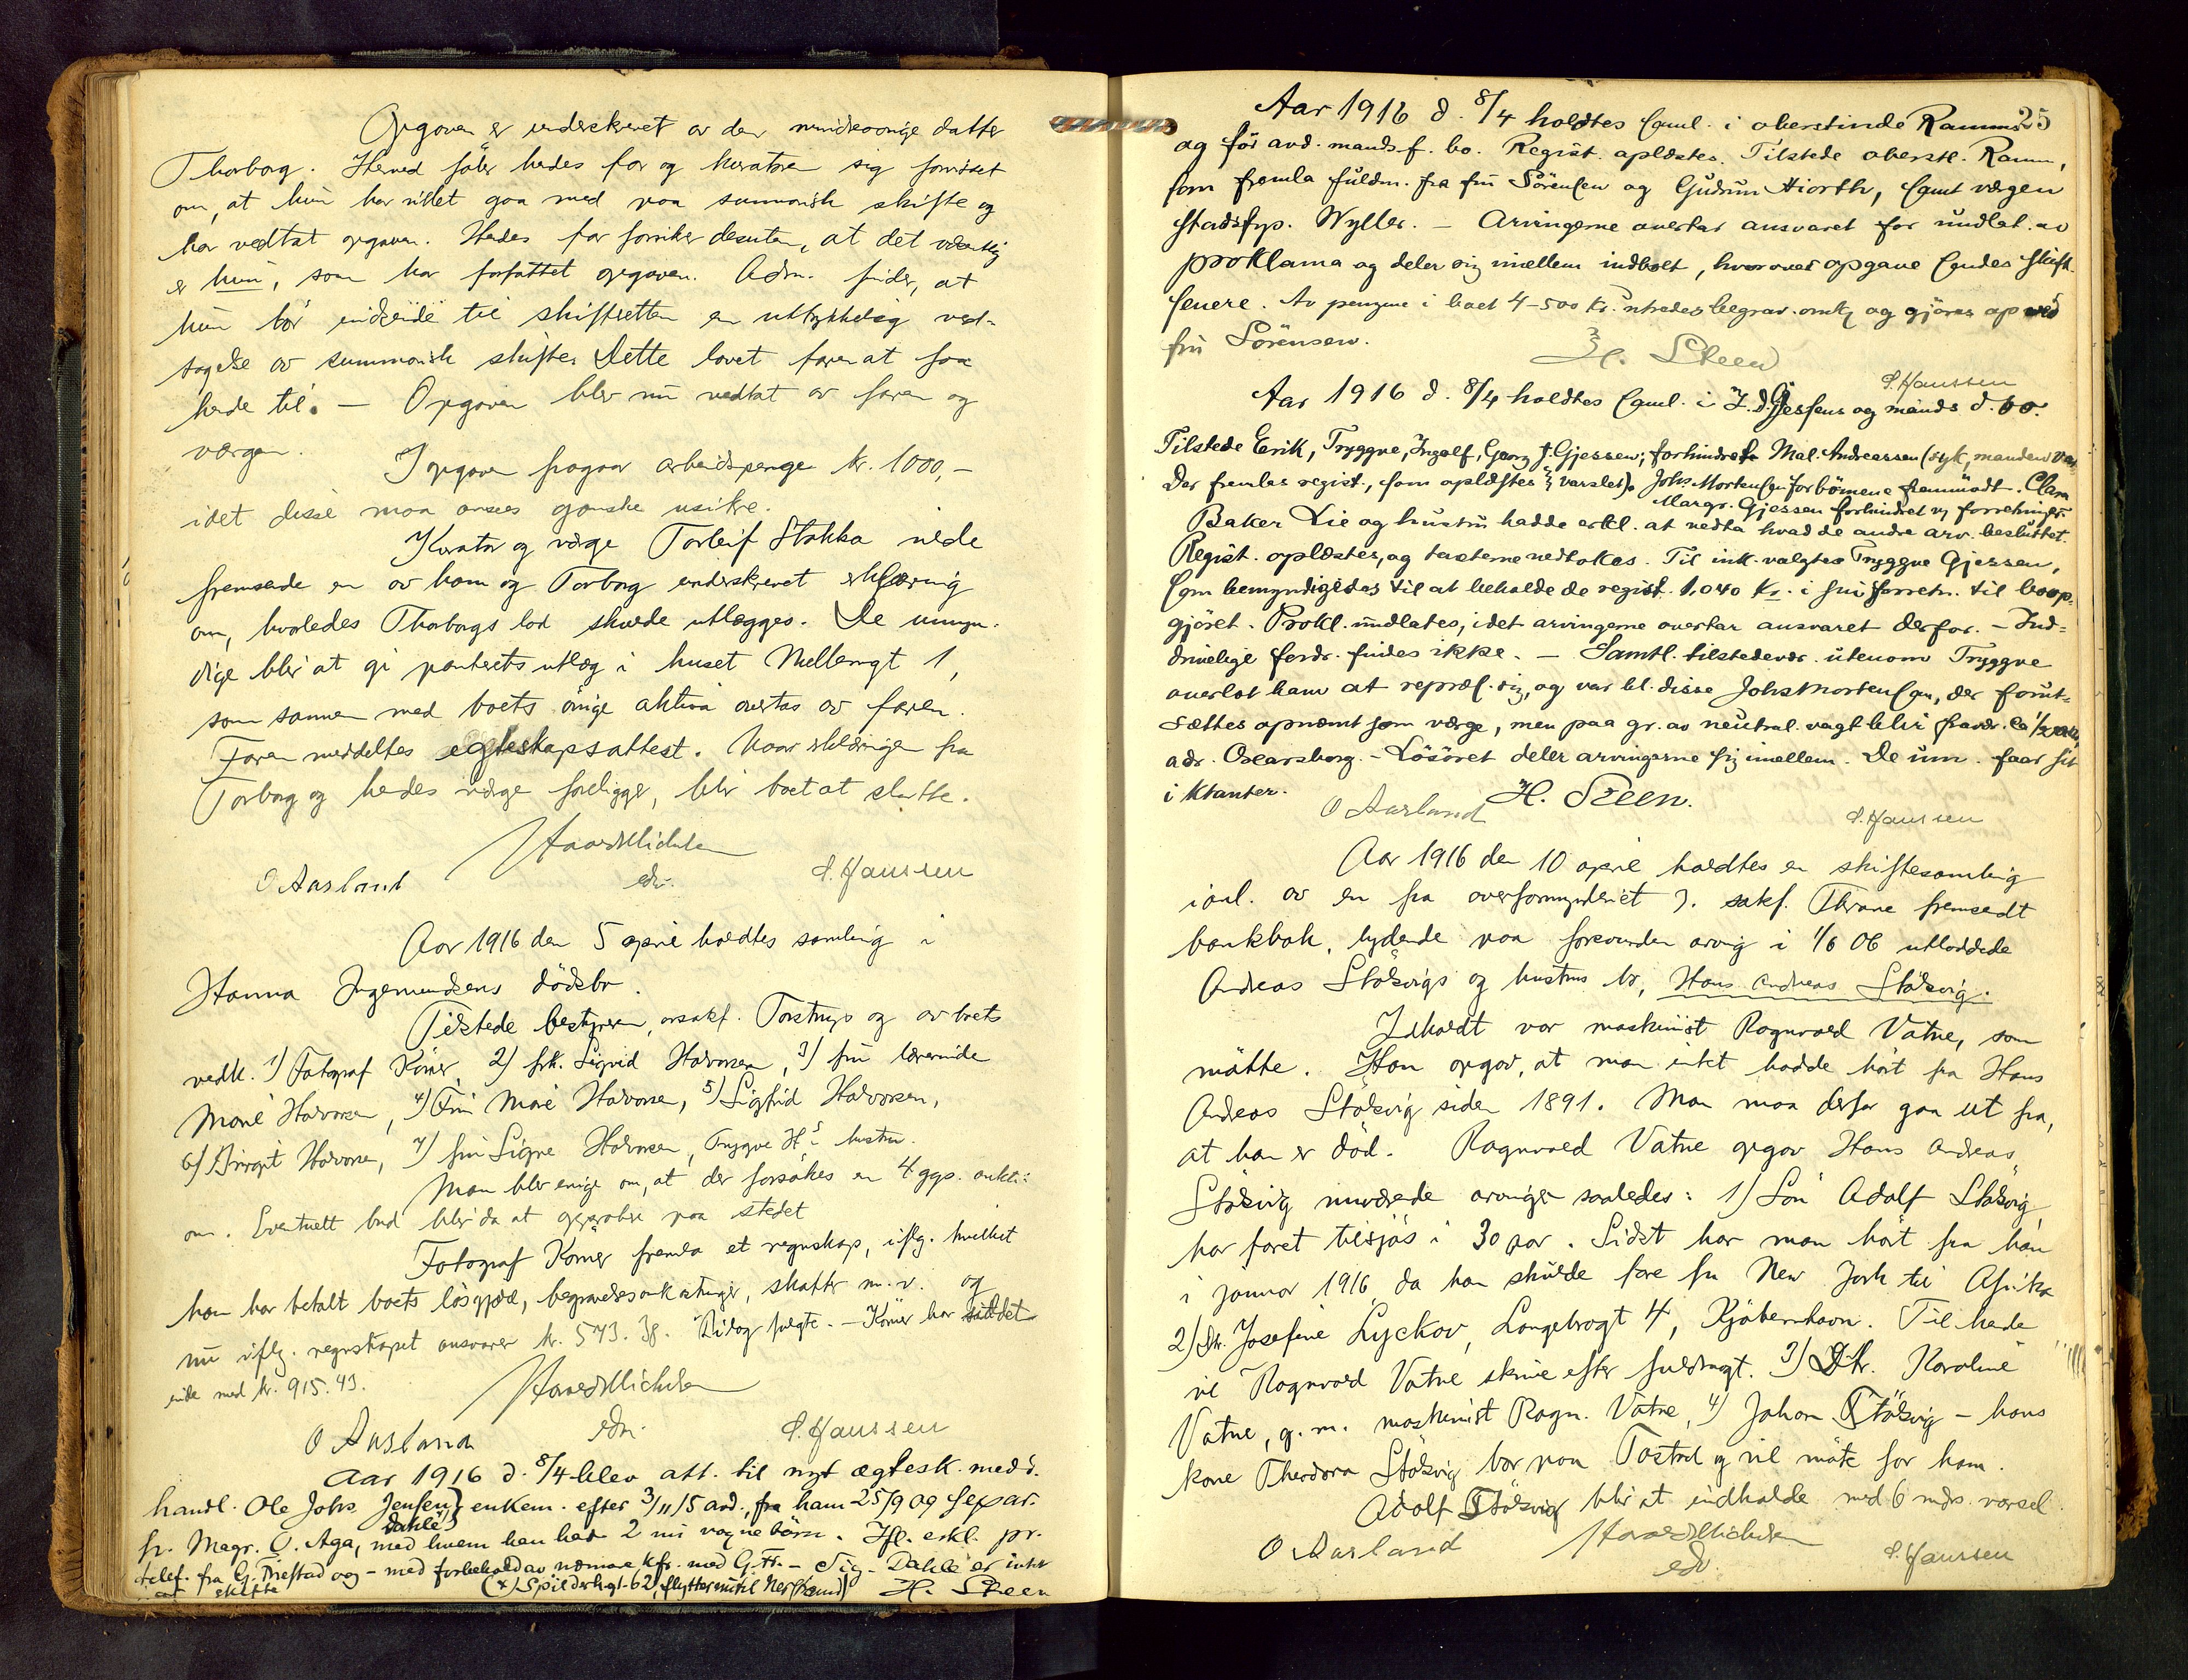 Opgaven er underskrevet av den mindreaarige datter
Thorborg. Herved föler hendes far og kurator sig forvisset
om, at hun har villet gaa med paa summarisk skifte og
har vedtat opgaven. Hendes far forsikrer desuten, at det
er hun, som har forfattet opgaven. Adm. finder, at
hun bör indsende til skifteretten en uttrykkelig ved-
tagelse av summarisk skifte. Dette lovet faren at faa
hende til. — Opgaven blev nu vedtat av faren og
vergen.
I opgaven fragaar arbeidspenge kr. 1000,-
idet disse maa ansees ganske usikre.
Kurator og verge Torleif Stokka vilde
fremsende en av ham og Torborg underskrevet erklæring
om, hvorledes Thorborgs lod skulde utlægges. De umyn-
dige blir at gi panterets utlæg i huset Mellemgt 1,
som sammen med boets övrige aktiva overtas av faren.
Faren meddeltes egteskapsattest. Naar erklæringen fra
Torborg og hendes verge foreligger, blir boet at slutte.
O Aasland
edv.
S. Hanssen
Aar 1916 den 5 april holdtes samling i
Hanna Ingemundsens dödsbo.
Tilstede bestyreren, orsakf. Torstrup og av boets
vedk. 1) Fotograf Körner, 2) frk. Sigrid Halvorsen, 3) frü lærerinde
Marie Halvorsen, 4) Frü Marie Halvorsen, 5) Sigfrid Halvorsen,
6) Birgit Halvorsen, 7) frü Signe Halvorsen, Trygve H.s hustru.
Man blev enige om, at der forsökes en 4 ggs. aukti-
on. Eventuelt bud blir da at approbere paa stedet
Fotograf Körner fremla et regnskap, iflg. hvilket
han har betalt boets lösgjæld, begravelsesomkostninger, skatter m.v. og
nu iflg. regnskapet ansvarer kr. 573.38. Bilag fulgte. — Körner har siddet
inde med kr. 915.43.
O Aasland
edv.
S. Hanssen
Aar 1916 d. 8/4 blev att. til nyt ægtesk. medd.
handl. Ole Johs. Jensen enkem. efter 3/11 15 avd., fra ham 25/9 09 separ.
Dahle
fr. Magr. O. Aga, med hvem han had 2 nu vogne börn. Hfl. erkl. pr.
telef. fra G. Tvestad og - med forbehold av nærmere kfr. med G. H. - Sig. Dahle er inkt
skifte (x) Spilderhgt. 62, flytter nu til Nerstrand) H. Steen
25
Aar 1916 d. 8/4 holdtes saml. i oberstinde Ramms
og för avd. mands f. bo. Regist. oplæstes. Tilstede oberstl. Ramm,
som fremla fuldm. fra frü Sörensen og Gudrun Hiorth, samt vergen
stadsfys. Wyller. — Arvingerne overtar ansvaret for undlat. av
proklama og deler sig imellem indboet, hvorover opgave sendes skift.
senere. Av pengene i boet 4-500 kr. utredes begrav. omk. og gjöres op ved
frü Sörensen.
H. Steen
S. Hanssen
Aar 1916 d. 8/4 holdtes saml. i J. d. Gjessens og mands d. bo.
Tilstede Erik, Tryggve, Ingolf, Georg J. Gjessen; forhindret Mal. Andreassen (syk, manden var
Der fremlas regist., som oplæstes varslet). Johs. Mortensen for börnene fremmödt. Clara
Margr. Gjessen forhindret v. forretninger.
Baker Lie og hustru hadde erkl. at vedta hvad de andre arv. besluttet.
Regist. oplæstes, og taxterne vedtokes. Til ink. valgtes Tryggve Gjessen,
som bemyndigedes til at beholde de regist. 1,040 kr. i sin forretn. til boop-
gjöret. Prokl. undlates, idet arvingerne overtar ansvaret derfor. — Ind-
drivelige fordr. findes ikke. — Samtl. tilstedevær. utenom Tryggve
overlot ham at repræs. sig, og var bl. disse Johs Mortensen, der forut-
sættes opnævnt som verge, men paa gr. av neutral. vagt blir fravær. ca 1/2 aar,
adr. Oscarsborg. - Lösöret deler arvingerne sig imellem. De um. faar sit
i ktanter.
O Aasland
H. Steen.
S. Hanssen
Aar 1916 den 10 april holdtes en skiftesamling
i anl. av en fra overformynderiet v. sakf. Thrane fremsendt
bankbok, lydende paa forsvunden arving i 1/6 06 utloddede
Andreas Stölsvigs og hustrus bo, Hans Andreas Stölsvig.
Indkaldt var maskinist Ragnvald Vatne, som
mötte. Han opgav, at man intet hadde hört fra Hans
Andreas Stölsvig siden 1891. Man maa derfor gaa ut fra,
at han er död. Ragnvald Vatne opgav Hans Andreas
Stölsvig nuværende arvinger saaledes: 1) Sön Adolf Stölsvig,
har faret tilsjös i 30 aar. Sidst har man hört fra ham
i januar 1916, da han skulde fare fra New York til Afrika
2) Dtr. Josefine Lyckov, Langebrogt 4, Kjöbenhavn. Til hende
vil Ragnvald Vatne skrive efter fuldmagt. 3) Dtr. Karoline
Vatne, g. m. maskinist Ragn. Vatne, 4) Johan Stölsvig - hans
kone Theodora Stölsvig bor paa Tasta og vil möte for ham.
Adolf Stölsvig blir at indkalde med 6 mdrs. varsel.
O Aasland
edv.
S. Hanssen